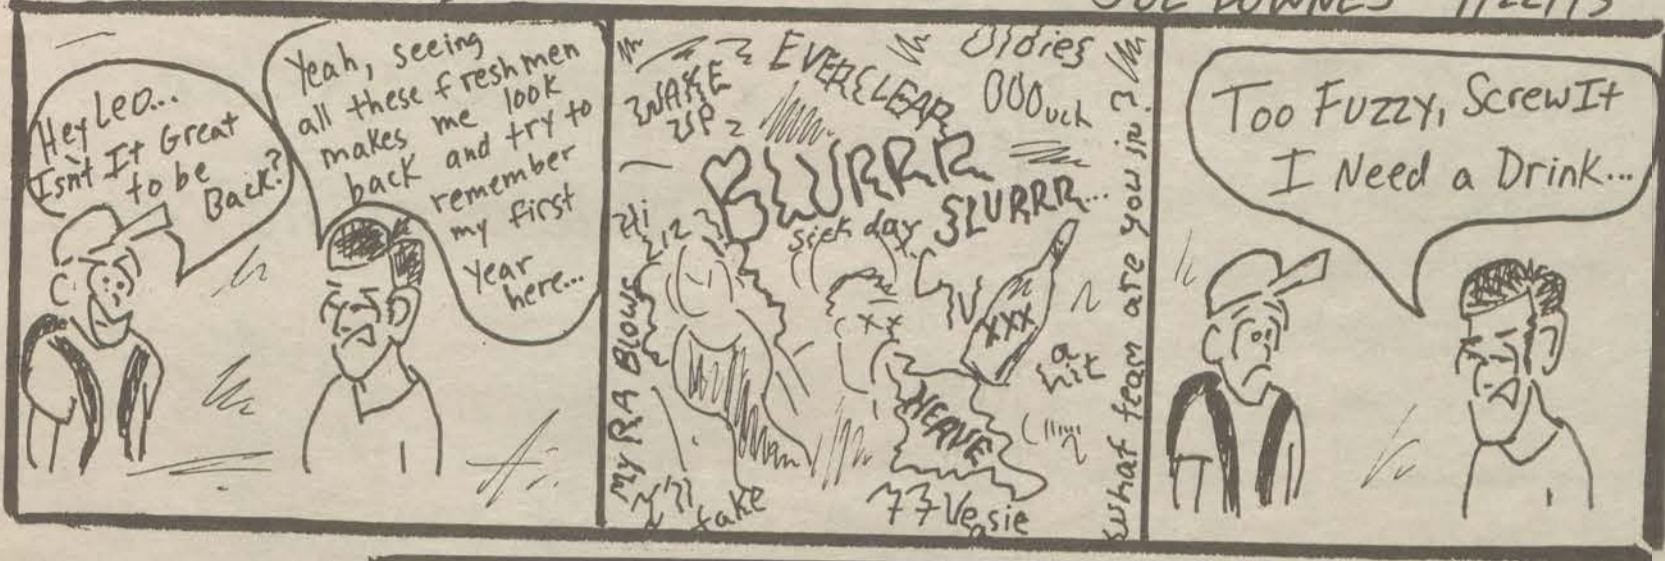 JOE DOWNES 9/22/93
Hey Leo...
Isn't It Great
to be
Back?
Yeah, seeing
all these freshmen
makes me look
back and try to
remember
my first
year
here...
WAKE
UP
EVERCLEAR
Oldies
OOOuch
BLURRR
SLURRR...
sick day
Hi
12
My RA Blows
XXX
xx
a
hit
HEAVE
I'll
take
77 Vessie
What team are you in?
Too Fuzzy, Screw It
I Need a Drink...